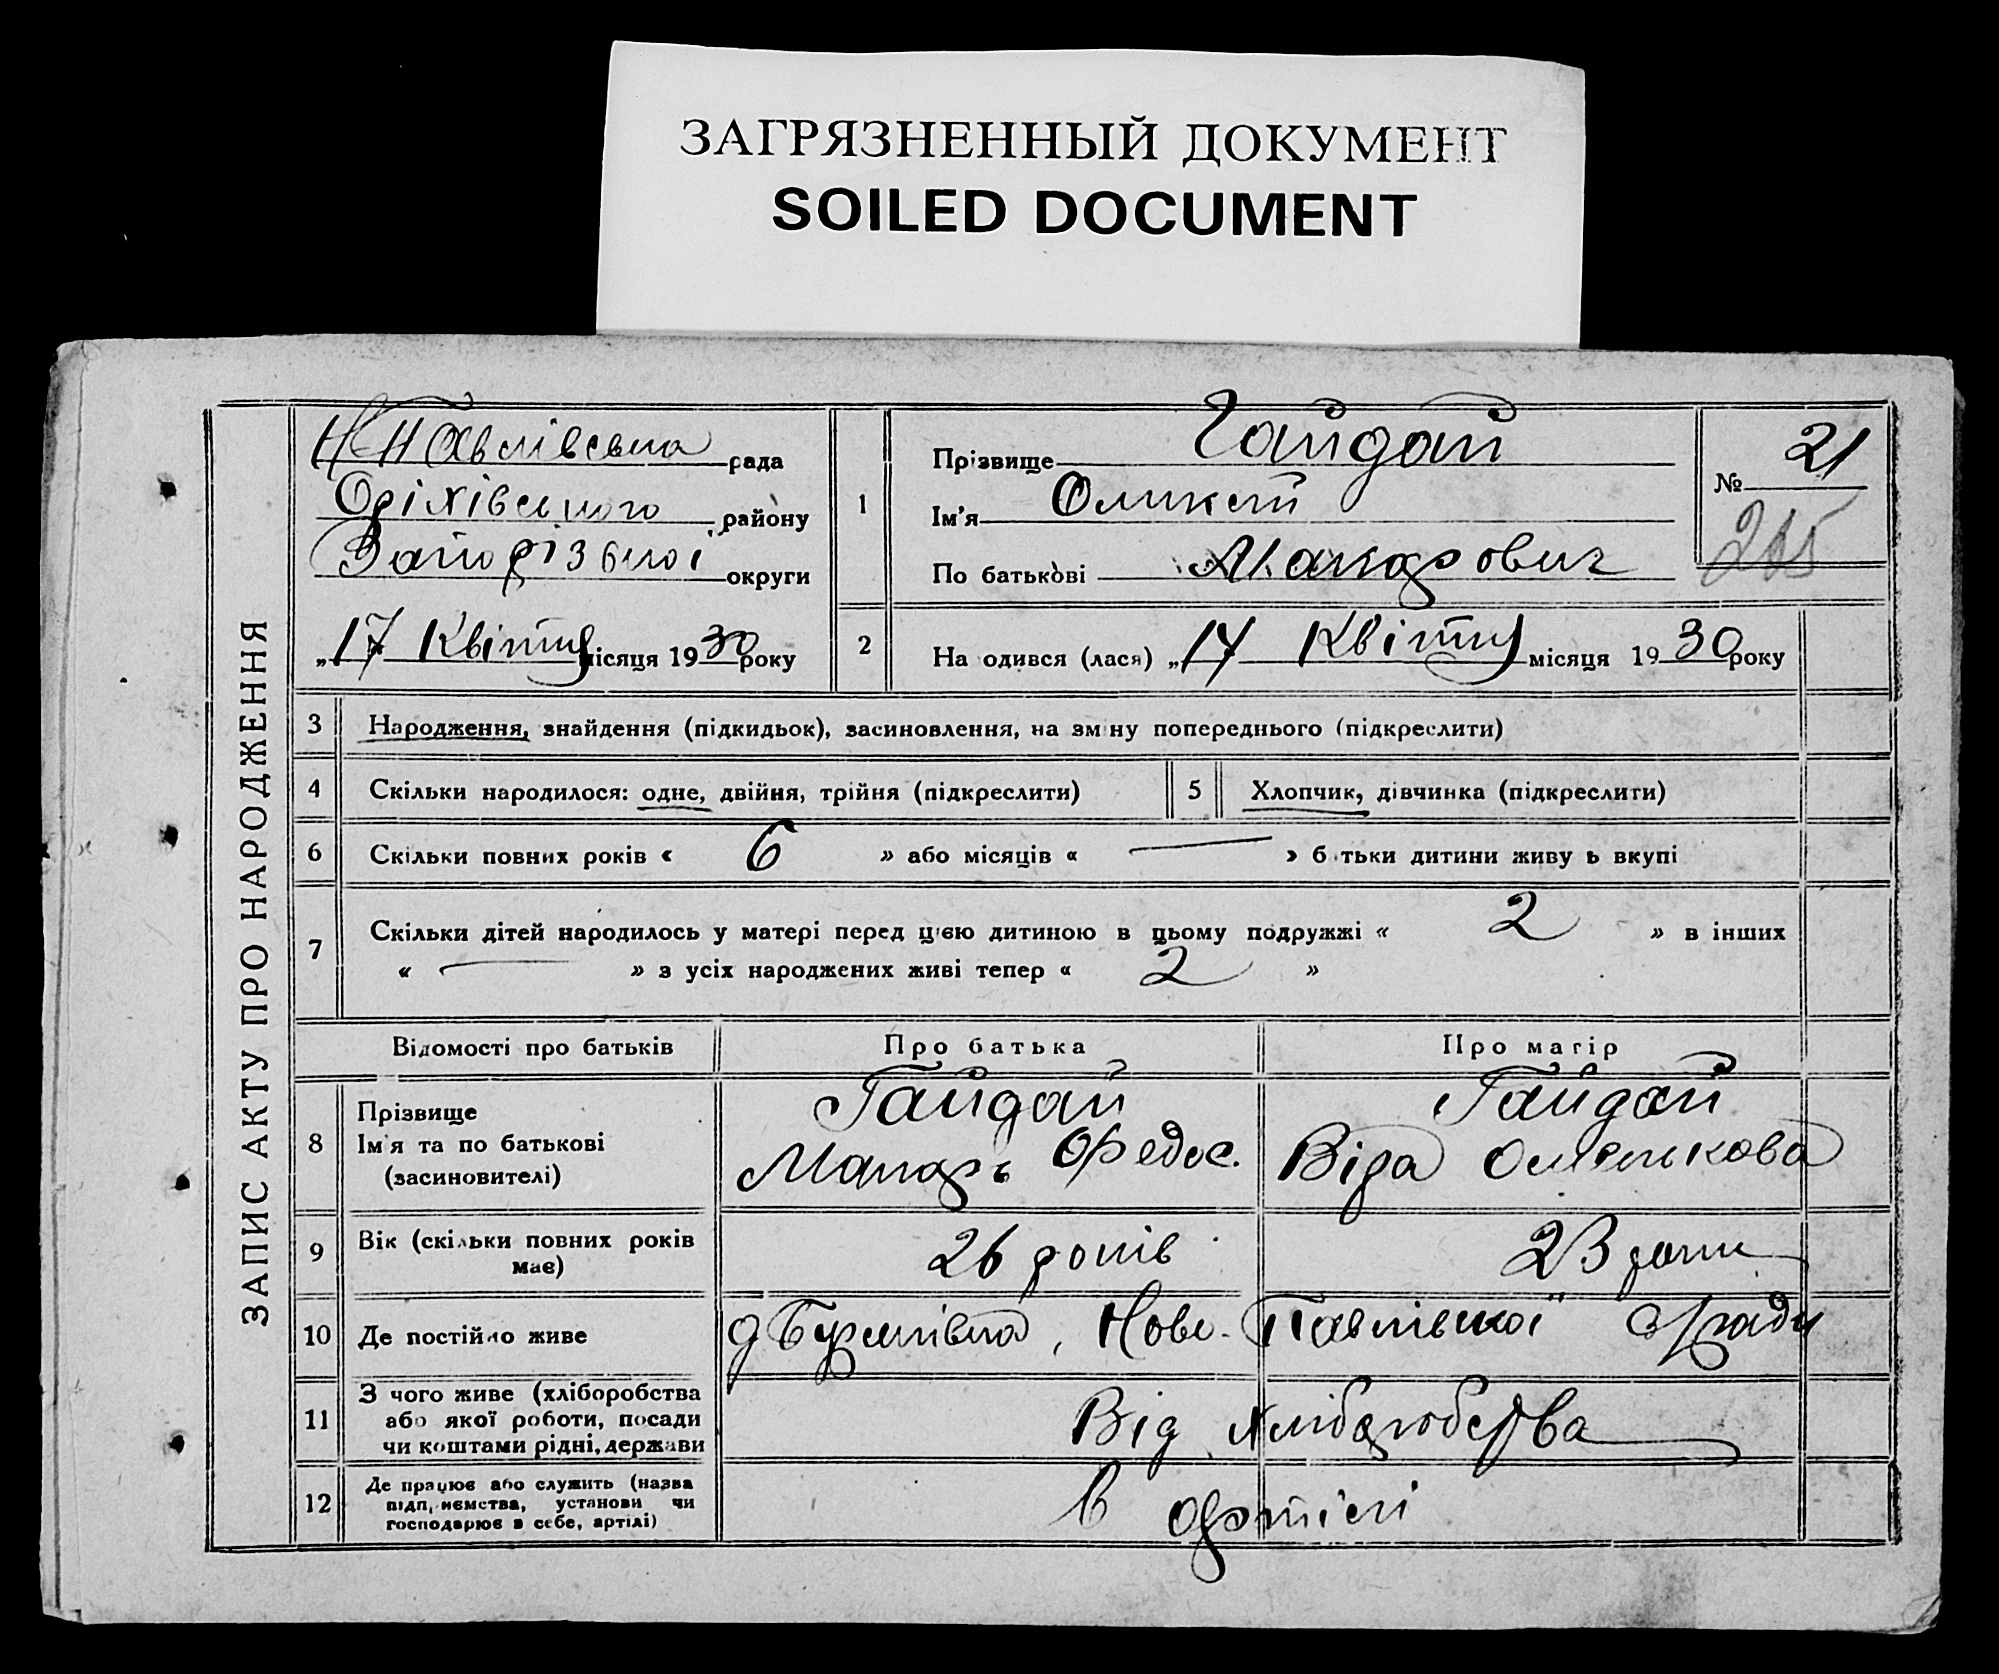 ЗАГРЯЗНЕННЫЙ ДОКУМЕНТ
SOILED DOCUMENT
ЗАПИС АКТУ ПРО НАРОДЖЕННЯ
Н Павлівська рада
Оріхівського району
Запорізької округи
„17 Квітня місяця 1930 року
1
Прізвище Гайдай
Ім'я
По батькові Макарович
№ 21
2
На одився (лася) „17 Квітня місяця 1930 року
3 Народження, знайдення (підкидьок), засиновлення, на зм ну попереднього (підкреслити)
4 Скільки народилося: одне, двійня, трійня (підкреслити)
5 Хлопчик, дівчинка (підкреслити)
6 Скільки повних років « 6 » або місяців « — » б тьки дитини живу ь вкупі
7 Скільки дітей народилось у матері перед цією дитиною в цьому подружжі « 2 » в інших
« — » з усіх народжених живі тепер « 2 »
Відомості про батьків Про батька Про матір
8 Прізвище
Ім'я та по батькові
(засиновителі)
Гайдай
Макарь Федос.
Гайдай
Віра
9 Вік (скільки повних років
має)
26 років
23 роки
10 Де постійно живе
Ново-Павлівської с/ради
11 З чого живе (хліборобства
або якої роботи, посади
чи коштами рідні, держави
Від хліборобства
12 Де працює або служить (назва
підп, иємства, установи чи
господарює в себе, артілі)
в артілі